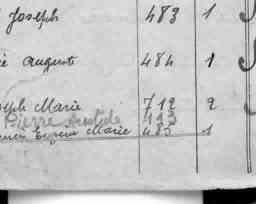 Joseph 483 1
Auguste 484 1
Joseph Marie 712 2
Pierre Aristide 193
Eugène Marie 485 1